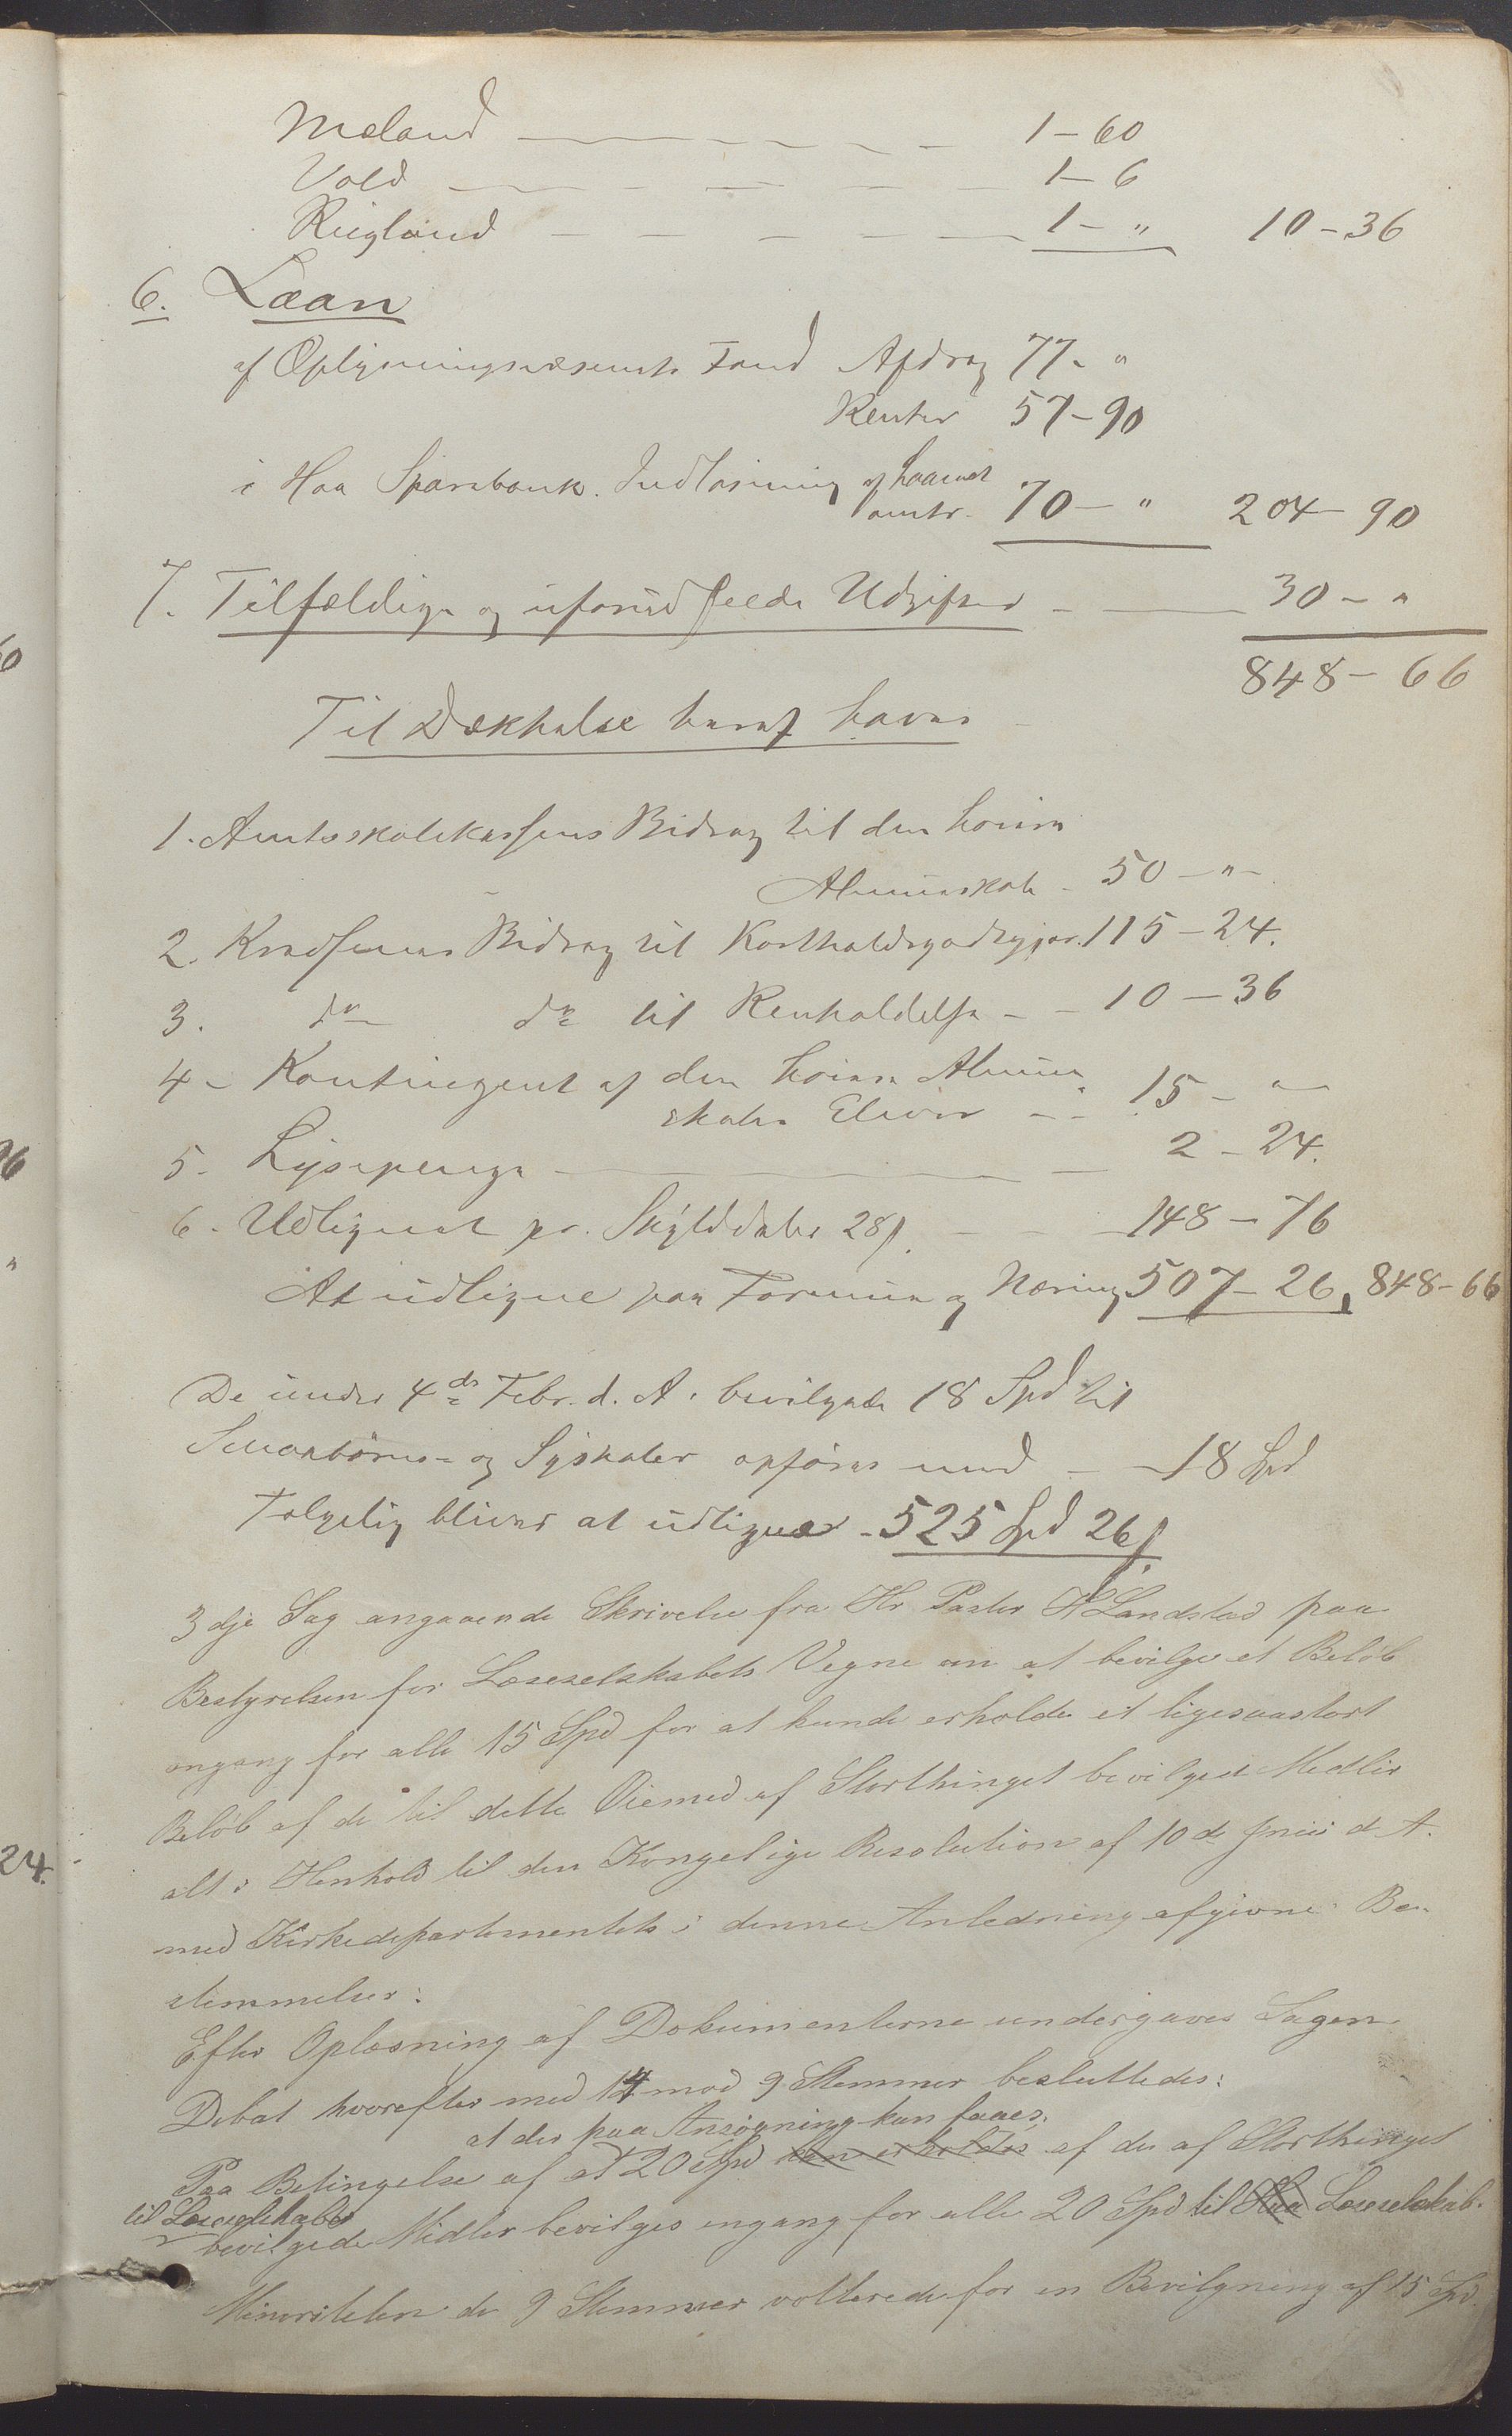 Mæland 1 - 60
Vold 1 - 6
Rugland 1 - " 10 - 36
6. Laan
af Oplysningsvæsenets Fond Afdrag 77 - "
Renter 57 - 90
i Haa Sparebank. Indløsning af Laanet
70 - " 204 - 90
7. Tilfældige og uforudseede Udgifter 30 - "
848 - 66
Til Dækkelse heraf haves
1. Amtsskolekassens Bidrag til den høiere
Almueskole - 50 - " -
2. Kredsenes Bidrag til Kostholdsgodtgjør. 115 - 24.
3. do do til Renholdelse - - 10 - 36
4 - Kontingent af den høiere Almue
skoles Elever - - 15 - "
5 - Lysepenge 2 - 24.
6 - Udlignet pr. Skylddaler 28 s. - - 148 - 76
At udligne paa Formue og Næring 507 - 26, 848 - 66
De under 4de Febr. d. A. bevilgede 18 Spd til
Smaabørns- og Syskoler opføres med - 18 Spd
Følgelig bliver at udligne - 525 Spd 26 s.
3dje Sag angaaende Skrivelse fra Hr Pastor H Landstad paa
Bestyrelsen for Læseselskabets Vegne om at bevilge et Beløb
engang for alle 15 Spd for at kunde erholde et ligesaastort
Beløb af de til dette Øiemed af Storthinget bevilgede Midler
alt i Henhold til den Kongelige Resolution af 10de Juni d. A.
med Kirkedepartementets i denne Anledning afgivne Be-
stemmelser:
Efter Oplæsning af Dokumenterne undergaves Sagen
Debat hvorefter med 14 mod 9 Stemmer besluttedes:
at der paa Ansøgning kan faaes,
Paa Betingelse af at 20 Spd kan erholdes af de af Storthinget
til Læseselskaber
bevilgede Midler bevilges engang for alle 20 Spd til Haa Læseselskab.
Minoriteten de 9 Stemmer votterede for en Bevilgning af 15 Spd.
60
36
"
24.